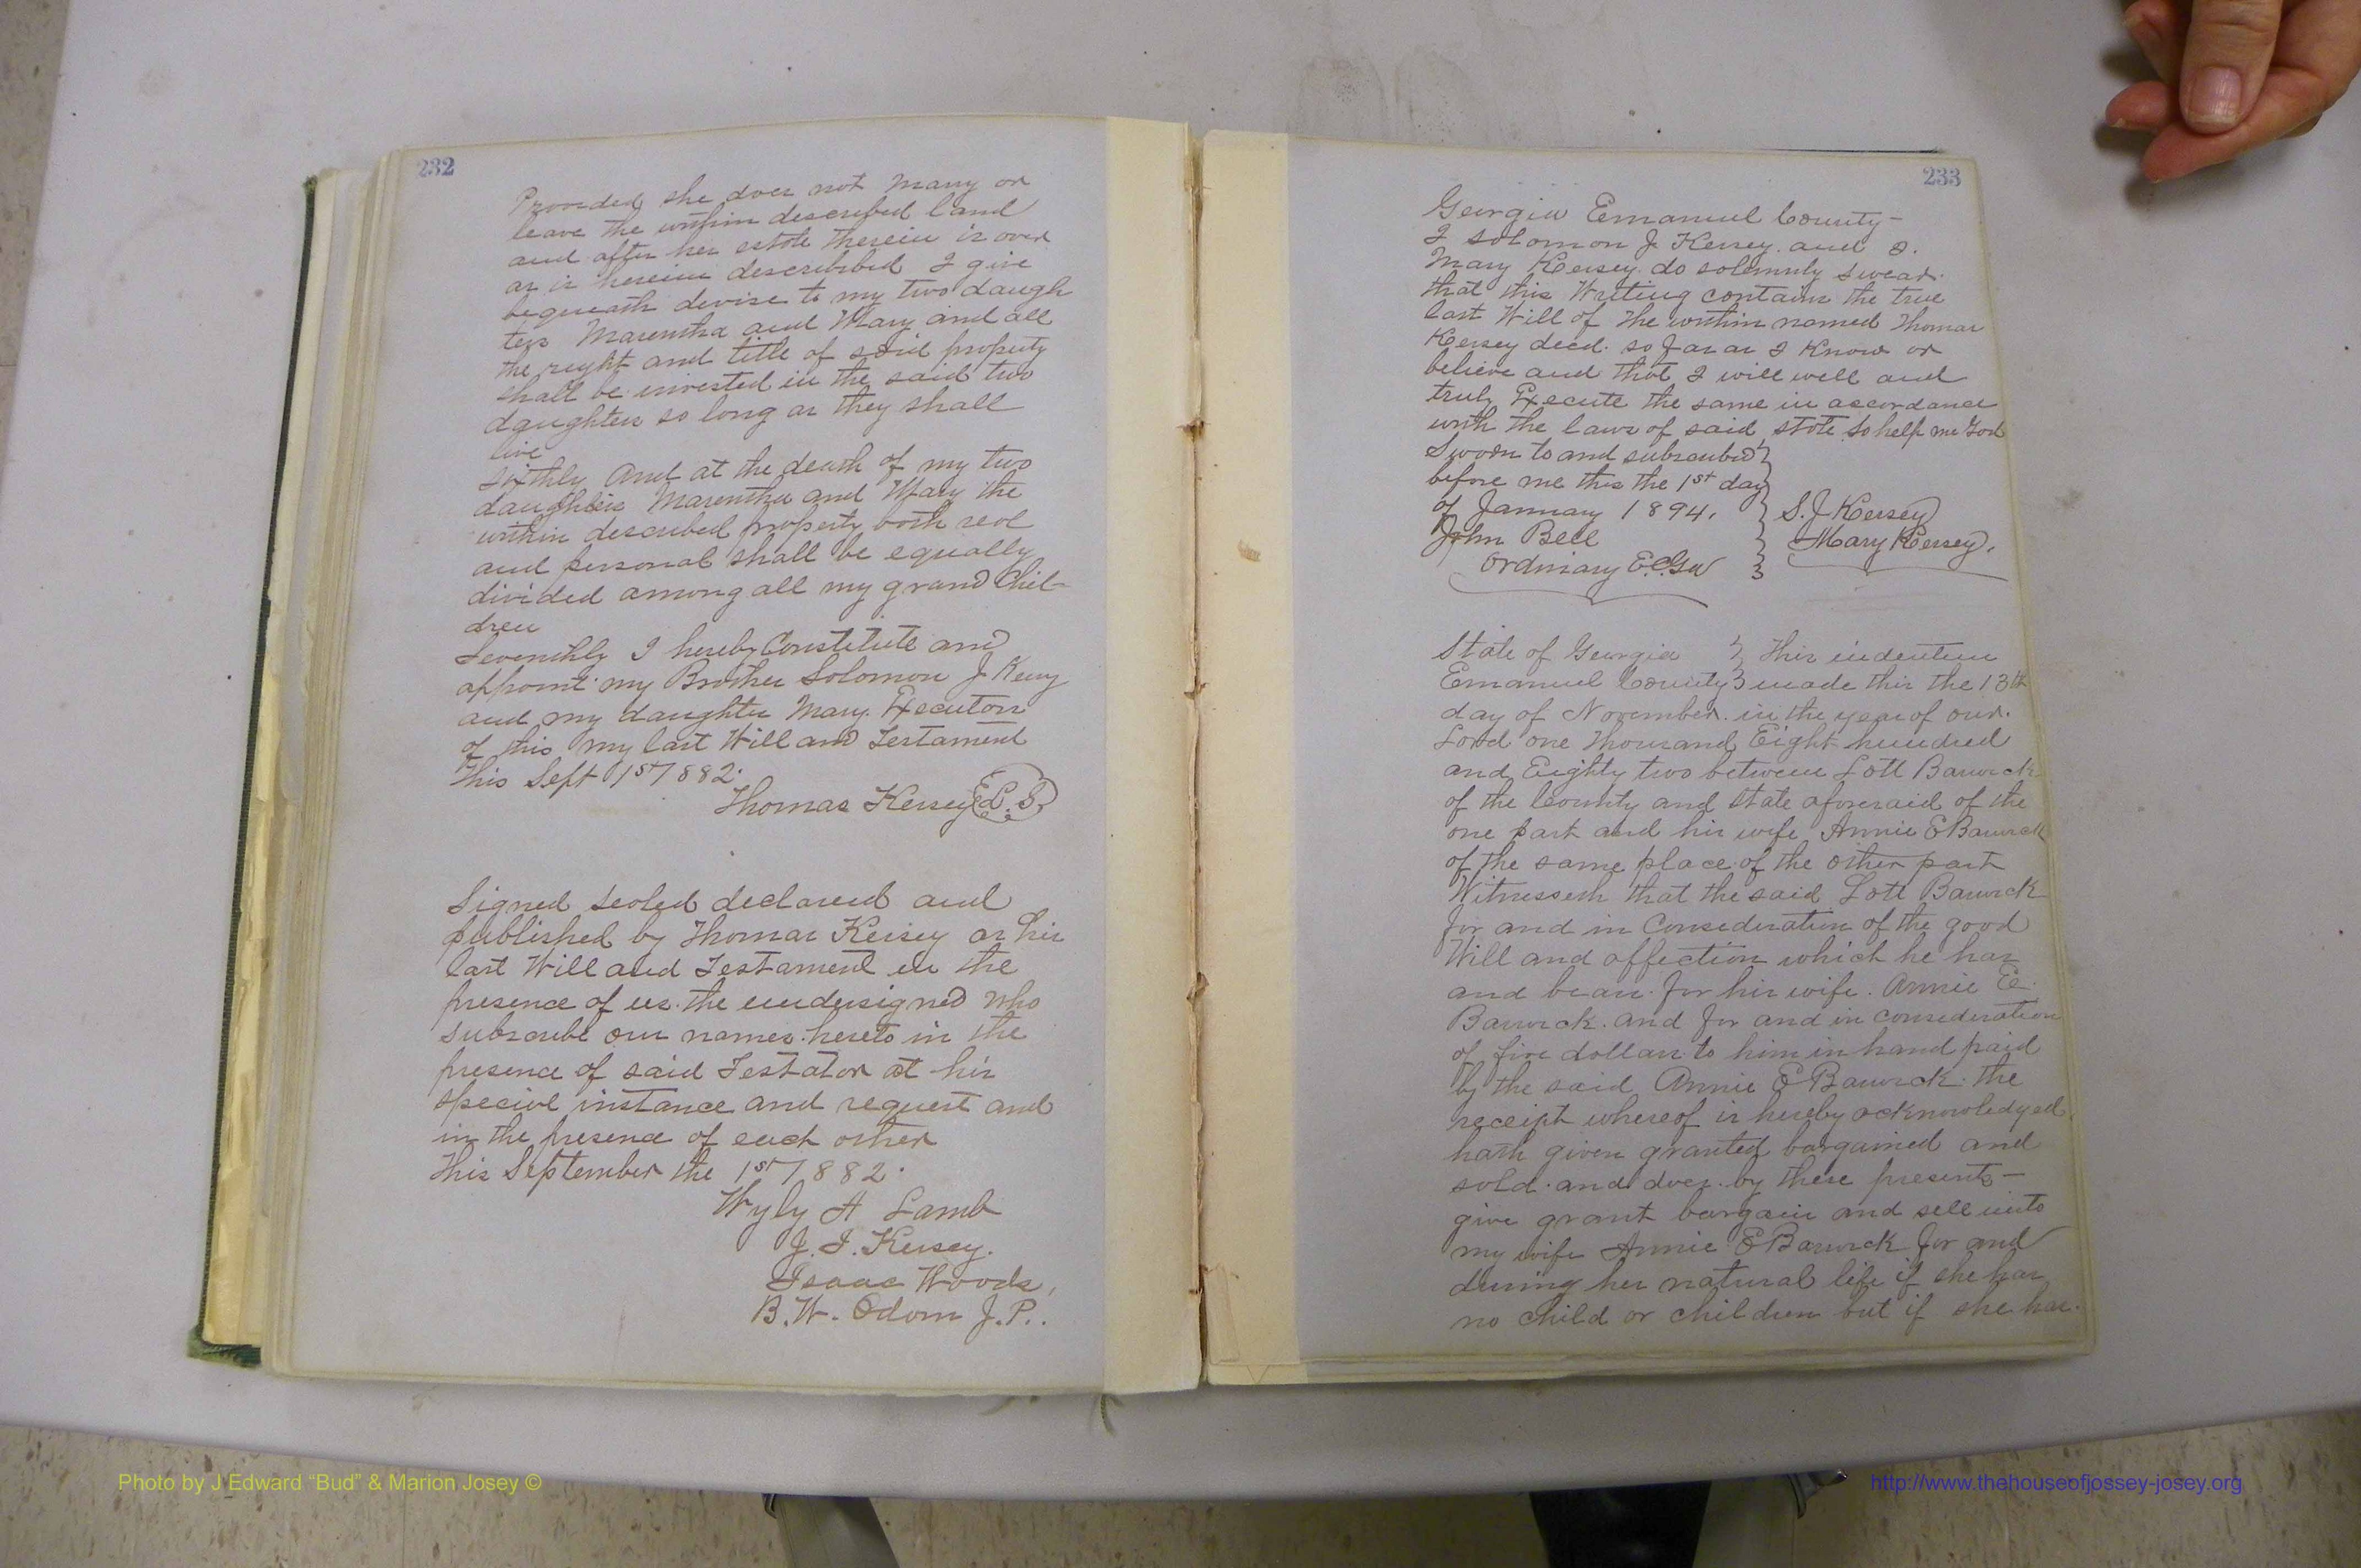 232
Provided she does not marry or
leave the within described land
and after her estate therein is over
as is herein describibed I give
bequeath devise to my two daugh
ters Marentha and Mary and all
the right and title of said property
shall be invested in the said two
daughters so long as they shall
live
Sixthly And at the death of my two
daughters Marentha and Mary the
within described property both real
and personal shall be equally
divided among all my grand Chil-
dren
Seventhly I hereby Constitute and
appoint my Brother Solomon J Kersey
and my daughter Mary Executors
of this my last Will and Testament
This Sept 1st 1882.
Thomas Kersey L.S.
Signed Sealed declared and
published by Thomas Kersey as his
last Will and Testament in the
presence of us the undersigned who
subscribe our names hereto in the
presence of said Testator at his
special instance and request and
in the presence of each other
This September the 1st 1882.
Wyly A Lamb
J. I. Kersey.
Isaac Woods,
B. W. Odom J. P..
233
Georgia Emanuel County-
I Solomon J Kersey and I.
Mary Kersey do solemnly swear.
that this Writing contains the true
last Will of the within named Thomas
Kersey decd. so far as I Know or
believe and that I will well and
truly Execute the same in accordance
with the laws of said state So help me God
Sworn to and subscribed
before me this the 1st day
of January 1894.
John Bell
Ordinary E.C.Ga
S. J. Kersey
Mary Kersey.
State of Georgia } This indenture
Emanuel County } made this the 13th
day of November in the year of our
Lord one Thousand Eight hundred
and Eighty two between Lott Barwick
of the County and State aforesaid of the
one part and his wife Annie E Barwick
of the same place of the other part
Witnesseth that the said Lott Barwick
for and in Consideration of the good
Will and affection which he has
and bears for his wife. Annie E.
Barwick. and for and in consideration
of five dollars to him in hand paid
by the said Annie E Barwick the
receipt whereof is hereby acknowledged.
hath given granted bargained and
sold and does by these presents-
give grant bargain and sell unto
my wife Annie E Barwick for and
during her natural life if she has
no child or children but if she has.
Photo by J Edward “Bud” & Marion Josey ©
http://www.thehouseofjossey-josey.org